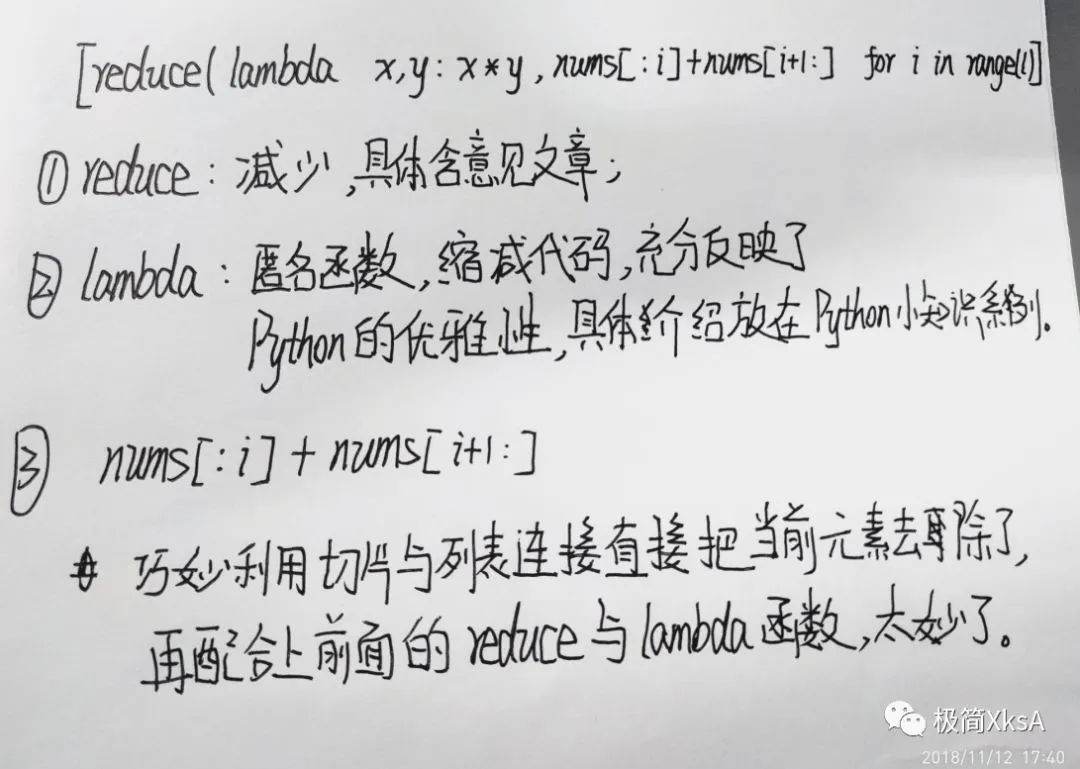 [reduce(lambda x,y: x*y, nums[:i]+nums[i+1:] for i in range(l)]
① reduce: 减少,具体含意见文章;
② lambda: 匿名函数,缩减代码,充分反映了
Python的优雅性,具体介绍放在Python小知识系列.
③ nums[:i]+nums[i+1:]
巧妙利用切片与列表连接直接把当前元素去除了,
再配合上前面的reduce与lambda函数,太妙了。
极简XksA
2018/11/12 17:40